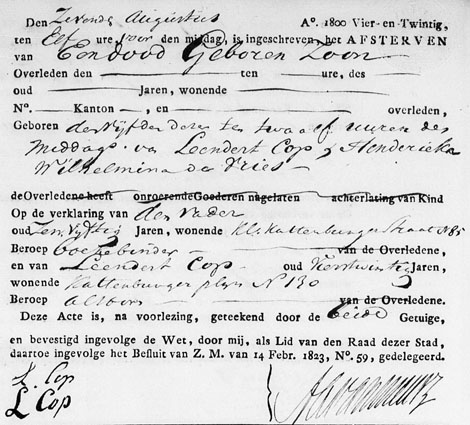 Den Zevende Augustus Ao. 1800 Vier-en-Twintig,
ten Elf ure voor den middag, is ingeschreven het AFSTERVEN
van Een dood Geboren Zoon
Overleden den ten ure, des
oud Jaren, wonende
No. Kanton, en overleden,
Geboren den Vijfde dezer te twaalf uuren des
Middags va Leendert Cop & Hendericka
Wilhelmina de Vries
de Overledene heeft onroerende Goederen nagelaten achterlating van Kind
Op de verklaring van den vader
oud Jaren, wonende Kattenburger Straat N 85
Beroep boekebinder van de Overledene,
en van Leendert Cop oud Jaren,
wonende Kattenburger plyn N 130
Beroep als bove van de Overledene.
Deze Acte is, na voorlezing, geteekend door de beide Getuige,
en bevestigd ingevolge de Wet, door mij, als Lid van den Raad dezer Stad,
daartoe ingevolge het Besluit van Z. M. van 14 Febr. 1823, No. 59, gedelegeerd.
L. Cop
L Cop